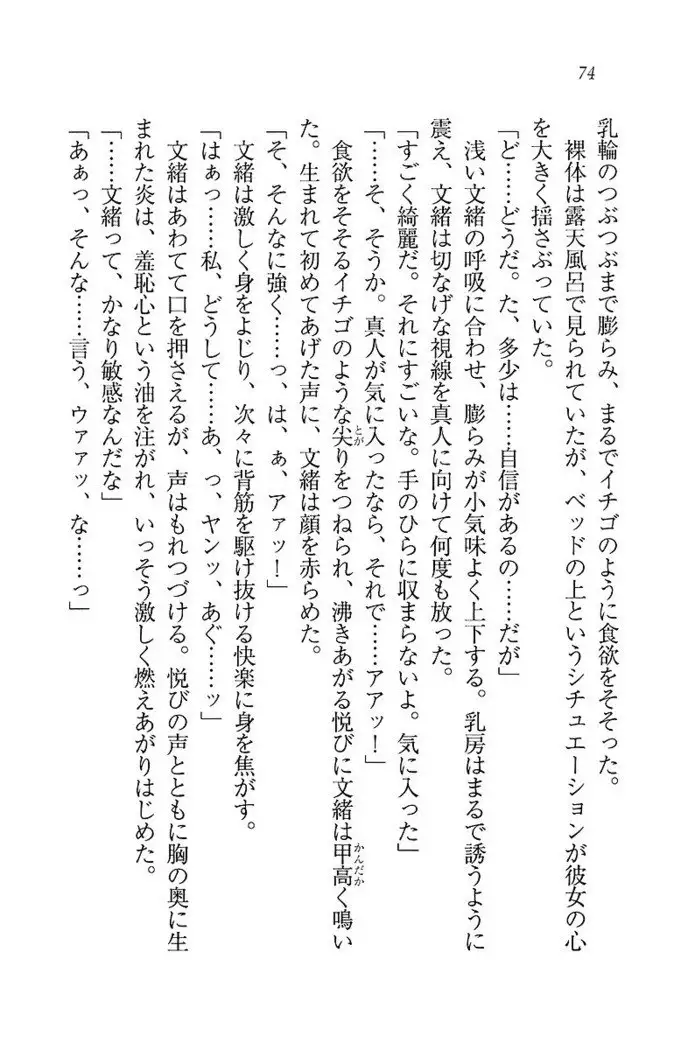 74
乳輪のつぶつぶまで膨らみ、まるでイチゴのように食欲をそそった。
裸体は露天風呂で見られていたが、ベッドの上というシチュエーションが彼女の心
を大きく揺さぶっていた。
「ど……どうだ。た、多少は……自信があるの……だが」
浅い文緒の呼吸に合わせ、膨らみが小気味よく上下する。乳房はまるで誘うように
震え、文緒は切なげな視線を真人に向けて何度も放った。
「すごく綺麗だ。それにすごいな。手のひらに収まらないよ。気に入った」
「……そ、そうか。真人が気に入ったなら、それで……アアッ！」
食欲をそそるイチゴのような尖りをつねられ、沸きあがる悦びに文緒は甲高く鳴い
た。生まれて初めてあげた声に、文緒は顔を赤らめた。
「そ、そんなに強く……っ、は、ぁ、アァッ！」
文緒は激しく身をよじり、次々に背筋を駆け抜ける快楽に身を焦がす。
「はぁっ……私、どうして……あ、っ、ヤンッ、あぐ……ッ」
文緒はあわてて口を押さえるが、声はもれつづける。悦びの声とともに胸の奥に生
まれた炎は、羞恥心という油を注がれ、いっそう激しく燃えあがりはじめた。
「……文緒って、かなり敏感なんだな」
「あぁっ、そんな……言う、ウァァッ、な……っ」